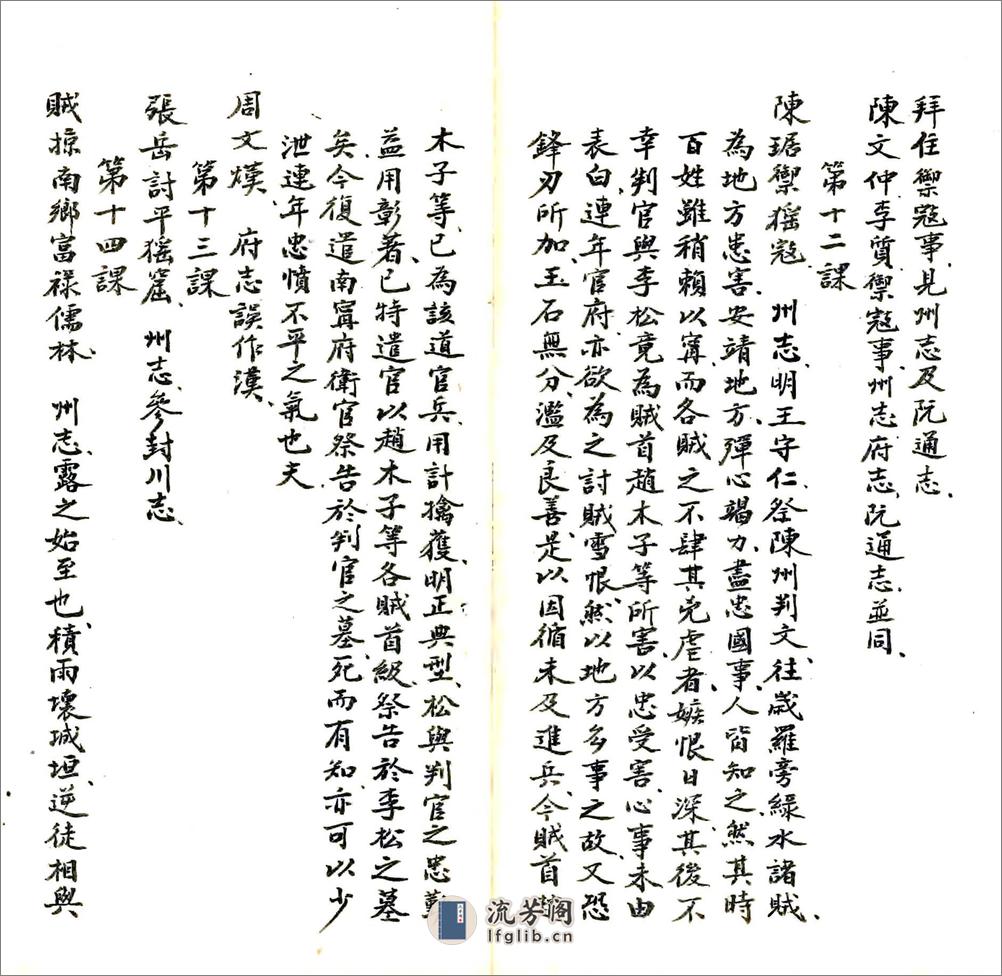 拜住禦寇事、見州志及阮通志、
陳文仲李質禦寇事、州志府志、阮通志並同、
第十二課
陳琚禦猺寇、 州志、明王守仁祭陳州判文、往歲羅旁綠水諸賊、
為地方患害、安靖地方、殫心竭力、盡忠國事、人皆知之、然其時
百姓雖稍賴以甯、而各賊之不肆其兇虐者、嫉恨日深、其後不
幸判官與李松竟為賊首趙木子等所害、以忠受害、心事未由
表白、連年官府、亦欲為之討賊雪恨、然以地方多事之故、又恐
鋒刃所加、玉石無分、濫及良善、是以因循未及進兵、今賊首
木子等、已為該道官兵、用計擒獲、明正典型、松與判官之忠勤
益用彰著、已特遣官以趙木子等各賊首級、祭告於李松之墓
矣、今復遣南甯府衛官祭告於判官之墓、死而有知、亦可以少
泄連年忠憤不平之氣也夫
周文煥 府志誤作漢、
第十三課
張岳討平猺窟、 州志、參封川志、
第十四課
賊掠南鄉富祿儒林、 州志、露之始至也、積雨壞城垣、逆徒相與
流芳閣
lfglib.cn